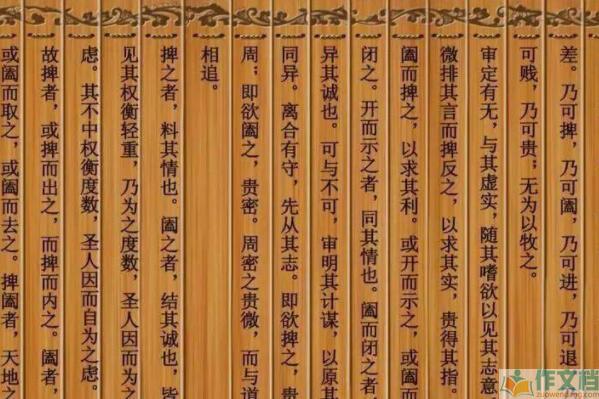 差。乃可捭，乃可阖，乃可进，乃可退
可贱，乃可贵；无为以牧之。
审定有无，与其虚实，随其嗜欲以见其志意
微排其言而捭反之，以求其实，贵得其指。
阖而捭之，以求其利。或开而示之，或阖
闭之。开而示之者，同其情也。阖而闭之者
异其诚也。可与不可，审明其计谋，以原其
同异。离合有守，先从其志。即欲捭之，贵
周；即欲阖之，贵密。周密之贵微，而与道
相追。
捭之者，料其情也。阖之者，结其诚也，皆
见其权衡轻重，乃为之度数，圣人因而为之
虑。其不中权衡度数，圣人因而自为之虑。
故捭者，或捭而出之，而捭而内之。阖者，
或阖而取之，或阖而去之。捭阖者，天地之
作文档
zuowendang.com